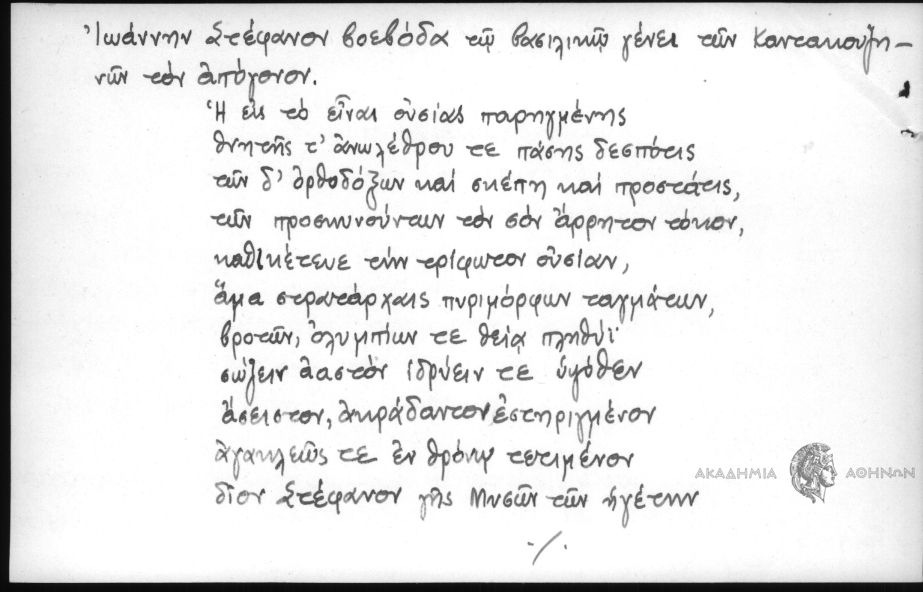 Ἰωάννην Στέφανον βοεβόδα τῷ βασιλικῷ γένει τῶν Καντακουζη-
νῶν τὸν ἀπόγονον.
Ἡ εἰς τὸ εἶναι οὐσίας παρηγμένης
θνητῆς τ' ἀνωλέθρου τε πάσης δεσπότις
τῶν δ' ὀρθοδόξων καὶ σκέπη καὶ προστάτις,
τῶν προσκυνούντων τὸν σὸν ἄρρητον τόκον,
καθικέτευε τὴν τρίφωτον οὐσίαν,
ἅμα στρατάρχαις πυριμόρφων ταγμάτων,
βροτῶν, ὀλυμπίων τε θείᾳ πληθύϊ
σώζειν λαὸν ἱδρύειν τε ὑψόθεν
ἄσειστον, ἀκράδαντον, ἐστηριγμένον
ἀγακλεῶς τε ἐν θρόνῳ τετιμένον
δῖον Στέφανον γῆς Μυσῶν τῶν ἡγέτην
./.
ΑΚΑΔΗΜΙΑ ΑΘΗΝΩΝ